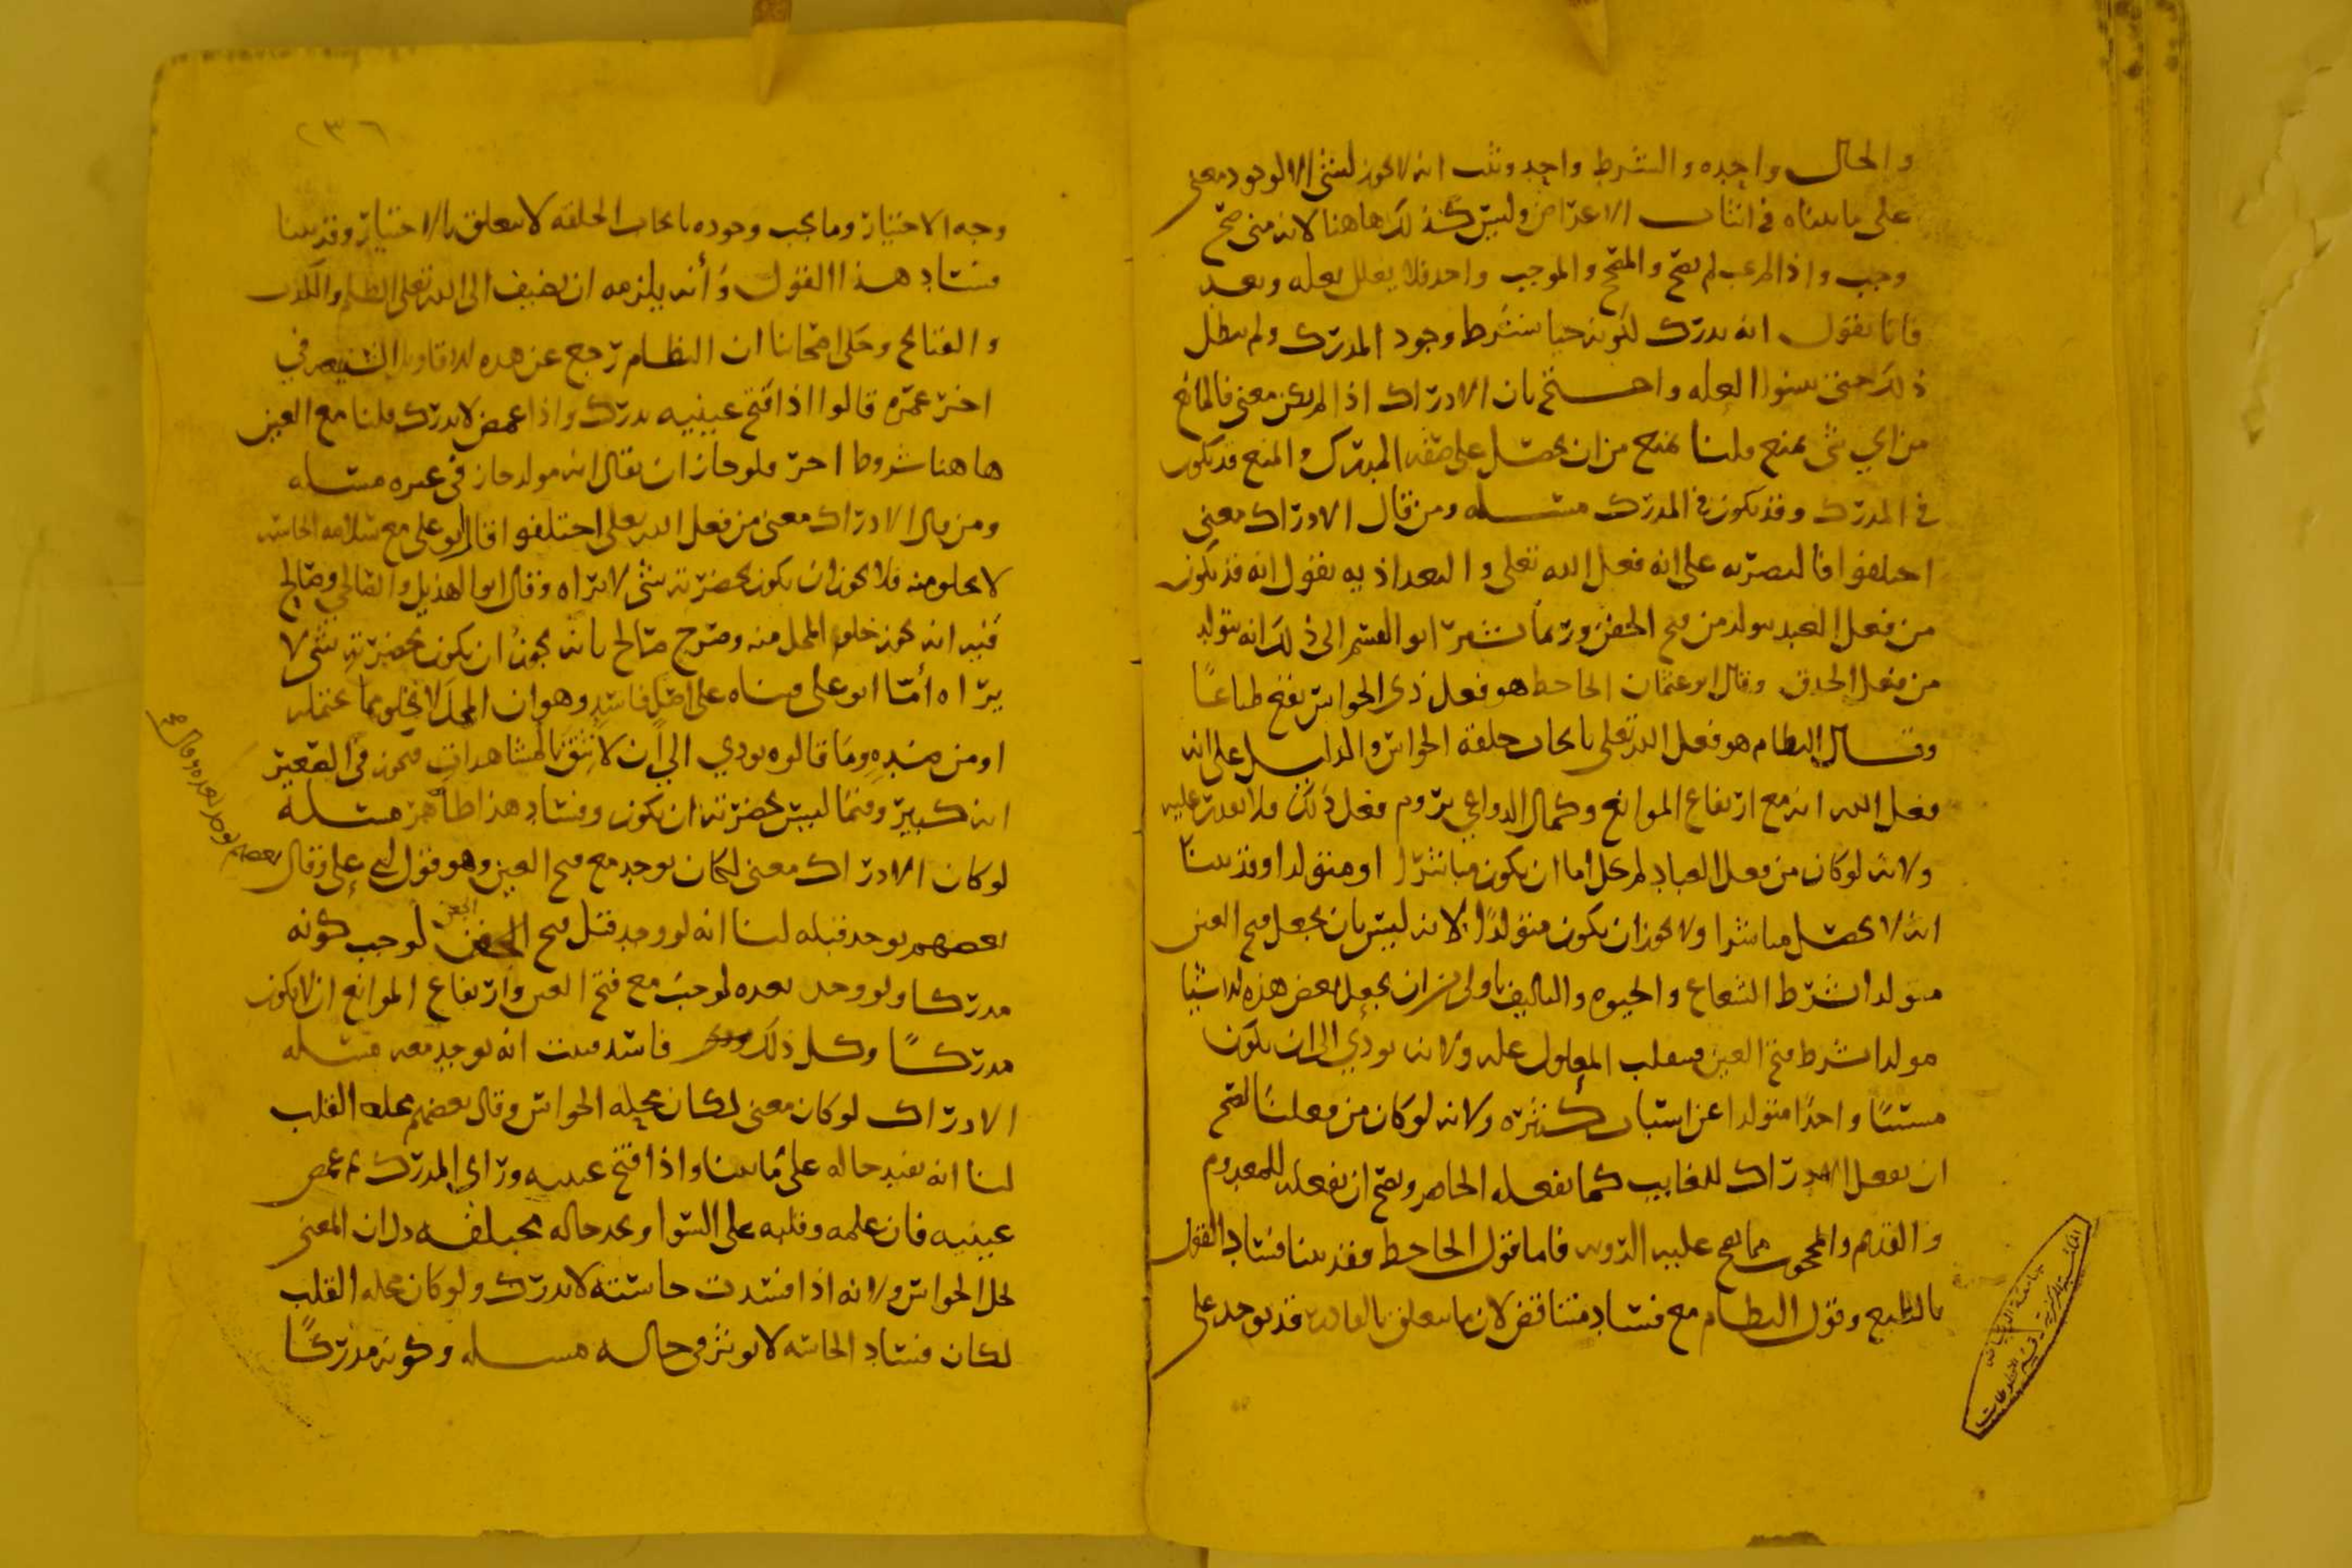 والحال واحده والشرط واحد وثبت انه لا يجوز لشي الا لوجود معنى
على ما بيناه في اثبات الاعراض وليس كذلك هاهنا لانه متى صح
وجب واذا لم يجب لم يصح والمصحح والموجب واحد فلا يعلل بعله وبعد
فانا نقول انه يدرك لكونه حيا بشرط وجود المدرك ولم يبطل
ذلك حتى يسوا العله واحتج بان الادراك اذا لم يكن معنى فالمانع
من اي شي يمنع قلنا يمنع من ان يحصل على صفه المدرك والمنع قد يكون
في المدرك وقد يكون في المدرك مسله ومن قال الادراك معنى
اختلفوا فالبصريه على انه فعل الله تعلى والبغداذيه يقول انه قد يكون
من فعل العبد يتولد من فتح الجفن وربما يشير ابو القسم الى ذلك انه يتولد
من فعل الحدق وقال ابو عثمان الجاحظ هو فعل ذي الحواس يقع طباعًا
وقال النظام هو فعل الله تعلى بايجاب خلقة الحواس والدليل على انه
فعل الله انه مع ارتفاع الموانع وكمال الدواعي يروم فعل ذلك فلا يقدر عليه
ولانه لو كان من فعل العباد لم يخل اما ان يكون مباشرا او متولدا وقد بينا
انه لا يحصل مباشرا ولا يجوز ان يكون متولدًا لانه ليس بان يجعل فتح العين
مولدا بشرط الشعاع والحيوه والتاليف باولى من ان يجعل بعض هذه الاشيا
مولدا بشرط فتح العين فينقلب المعلول عله ولانه يودي الى ان يكون
مسببًا واحدًا متولدا عن اسباب كثيره ولانه لو كان من فعلنا لصح
ان نفعل الادراك للغايب كما نفعله للحاضر ويصح ان نفعله للمعدوم
والقديم والمحجوب مما يصح عليه الرويه فاما قول الجاحظ فقد بينا فساد القول
بالطبع وقول النظام مع فساده متناقض لان ما يتعلق بالقادر قد يوجد على
المكتبة المركزية
جامعة الرياض
قسم المخطوطات
٢٣٦
وجه الاختيار وما يجب وجوده بايجاب الخلقه لا يتعلق بالاختيار وقد بينا
فساد هذا القول وأنه يلزمه ان يضيف الى الله تعلى الظلم والكذب
والقبايح وحكى اصحابنا ان النظام رجع عن هذه الاقاويل الشنيعه في
اخر عمره قالوا اذا فتح عينيه يدرك واذا غمض لا يدرك قلنا مع العين
هاهنا شروط اخر فلو جاز ان يقال انه مولد جاز في غيره مسله
ومن قال الادراك معنى من فعل الله تعلى اختلفوا قال ابو علي مع سلامه الحاسه
لا يخلو منه فلا يجوز ان يكون بحضرته شي لا يراه وقال ابو الهذيل والصالحي وصالح
قبه انه يجوز خلو المحل منه وصرح صالح بانه يجوز ان يكون بحضرته شي لا
يراه أما ابو علي فبناه على اصل فاسد وهو ان المحل لا يخلو مما يحتمله
او من ضده وما قالوه يودي الي أن لا نثق بالمشاهدات فنجوز في الصغير
انه كبير وفيما ليس بحضرته ان يكون وفساد هذا ظاهر مسله
لو كان الادراك معنى لكان يوجد مع فتح العين وهو قول ابي علي وقال
بعضهم يوجد قبله لنا انه لو وجد قبل فتح الجفن لوجب كونه
الجفن
مدركا ولو وجد بعده لوجب مع فتح العين وارتفاع الموانع ان لا يكون
مدركًا وكل ذلك فاسد فثبت انه يوجد معه مسله
الادراك لو كان معنى لكان محله الحواس وقال بعضهم محله القلب
لنا انه يفيد حاله على ما بينا واذا فتح عينيه وراى المدرك ثم غمض
عينيه فان علمه وقلبه على السوا ويجد حاله مختلفه دل ان المعنى
لحل الحواس ولانه اذا فسدت حاسته لا يدرك ولو كان محله القلب
لكان فساد الحاسه لا يوثر في حاله مسله وكونه مدركًا
بعضهم يوجد بعده وقال صح